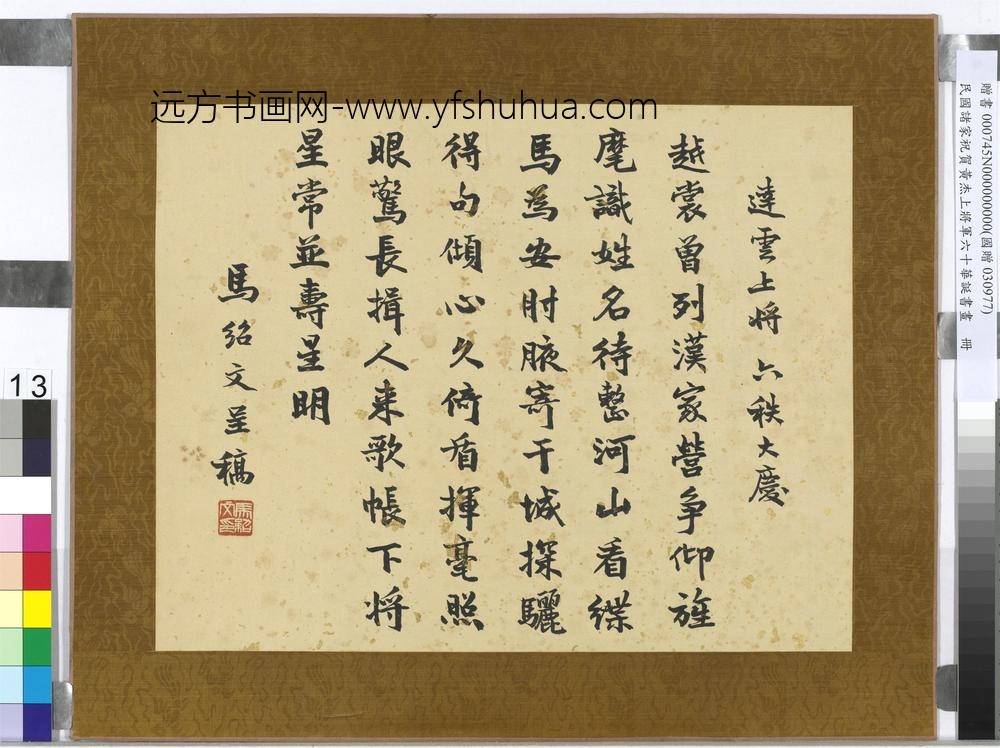 远方书画网-www.yfshuhua.com
達雲上將 六秩大慶
越裳曾列漢家營爭仰旌
麾識姓名待整河山看緤
馬為安肘腋寄干城探驪
得句傾心久倚盾揮毫照
眼驚長揖人來歌帳下將
星常並壽星明
馬紹文呈稿
馬紹文印
贈書 000745N000000000(國贈 030977)
民國諸家祝賀黃杰上將軍六十華誕書畫 冊
13